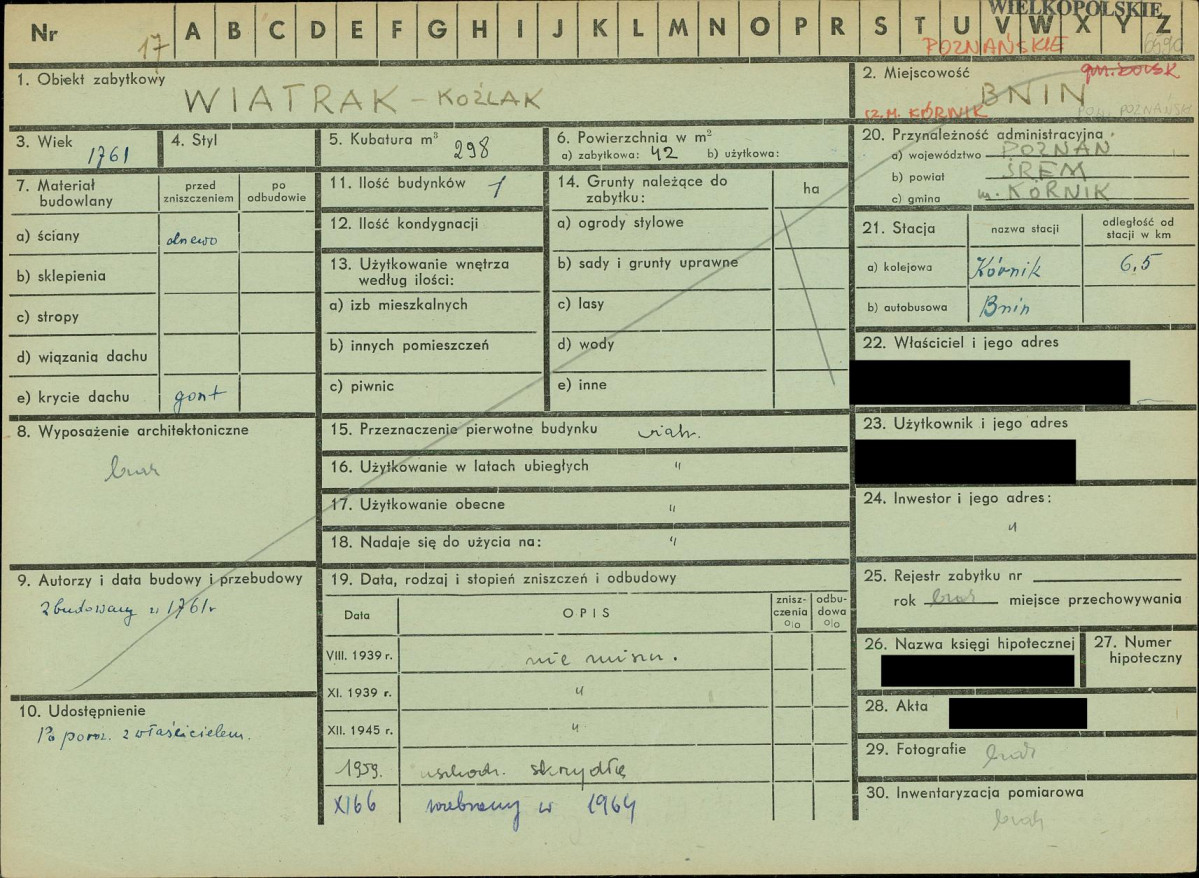 WIELKOPOLSKIE
Nr 17 A B C D E F G H I J K L M N O P R S T U V W X Y Z
POZNAŃSKIE
1. Obiekt zabytkowy
WIATRAK – KOŹLAK
2. Miejscowość
BNIN
KÓRNIK
3. Wiek
1761
4. Styl
5. Kubatura m³
298
6. Powierzchnia w m²
a) zabytkowa: 42 b) użytkowa:
20. Przynależność administracyjna
a) województwo POZNAŃ
b) powiat ŚREM
c) gmina m. KÓRNIK
7. Materiał budowlany
przed zniszczeniem
po odbudowie
a) ściany drewo
b) sklepienia
c) stropy
d) wiązania dachu
e) krycie dachu gont
11. Ilość budynków 1
12. Ilość kondygnacji
13. Użytkowanie wnętrza według ilości:
a) izb mieszkalnych
b) innych pomieszczeń
c) piwnic
14. Grunty należące do zabytku:
ha
a) ogrody stylowe
b) sady i grunty uprawne
c) lasy
d) wody
e) inne
21. Stacja
nazwa stacji
odległość od stacji w km
a) kolejowa Kórnik 6,5
b) autobusowa Bnin
22. Właściciel i jego adres
8. Wyposażenie architektoniczne
brak
15. Przeznaczenie pierwotne budynku wiatr.
16. Użytkowanie w latach ubiegłych "
17. Użytkowanie obecne "
18. Nadaje się do użycia na: "
23. Użytkownik i jego adres
24. Inwestor i jego adres:
"
9. Autorzy i data budowy i przebudowy
Zbudowany w 1761r
19. Data, rodzaj i stopień zniszczeń i odbudowy
Data
OPIS
znisz-
czenia
%
odbu-
dowa
%
VIII. 1939 r. nie niszcz.
XI. 1939 r. "
XII. 1945 r. "
1959. uszkodz. skrzydła
XI 66 rozebrany w 1964
25. Rejestr zabytku nr
rok brak miejsce przechowywania
26. Nazwa księgi hipotecznej
27. Numer hipoteczny
10. Udostępnienie
Po poroz. z właścicielem.
28. Akta
29. Fotografie brak
30. Inwentaryzacja pomiarowa
brak